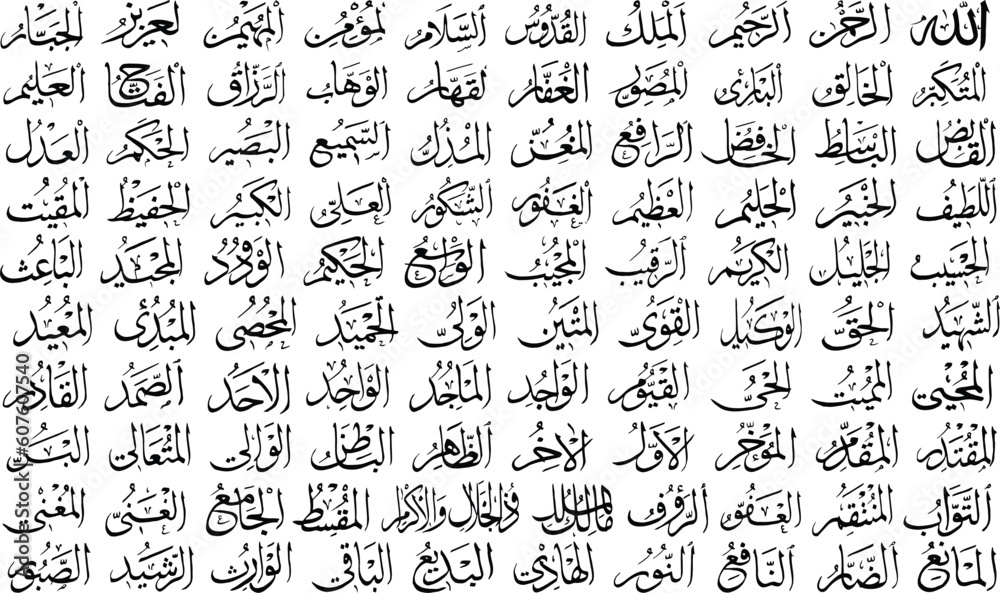 الله الرحمن الرحيم الملك القدوس السلام المؤمن المهيمن العزيز الجبار
المتكبر الخالق البارئ المصور الغفار القهار الوهاب الرزاق الفتاح العليم
القابض الباسط الخافض الرافع المعز المذل السميع البصير الحكم العدل
اللطيف الخبير الحليم العظيم الغفور الشكور العلي الكبير الحفيظ المقيت
الحسيب الجليل الكريم الرقيب المجيب الواسع الحكيم الودود المجيد الباعث
الشهيد الحق الوكيل القوي المتين الولي الحميد المحصي المبدئ المعيد
المحيي المميت الحي القيوم الواجد الماجد الواحد الاحد الصمد القادر
المقتدر المقدم المؤخر الاول الاخر الظاهر الباطن الوالي المتعالي البر
التواب المنتقم العفو الرؤوف مالك الملك ذو الجلال والاكرام المقسط الجامع الغني المغني
المانع الضار النافع النور الهادي البديع الباقي الوارث الرشيد الصبور
Adobe Stock | #607607540